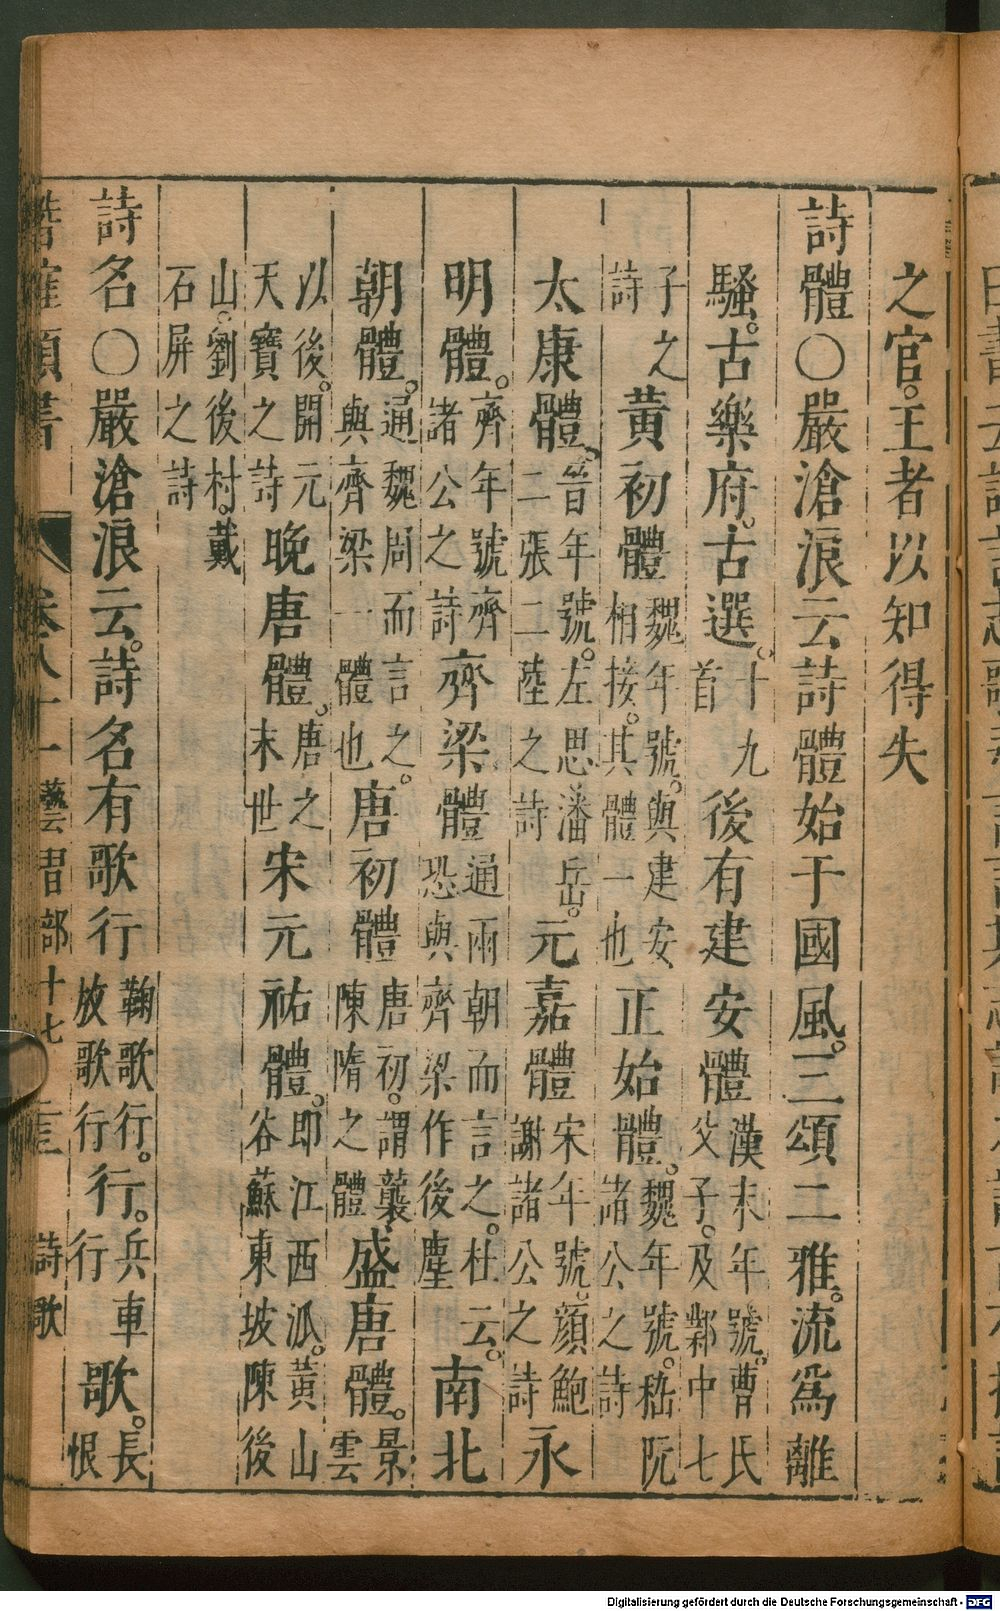 之官。王者以知得失
詩體〇嚴滄浪云詩體始于國風。三頌二雅。流爲離
騷。古樂府。古選。十九首後有建安體漢末年號。曹氏父子。及鄴中七
子之詩黃初體魏年號。與建安相接。其體一也正始體。魏年號。嵇阮諸公之詩
太康體。晉年號。左思潘岳。二張二陸之詩元嘉體宋年號。顏鮑謝諸公之詩永
明體。齊年號齊諸公之詩齊梁體通兩朝而言之。杜云。恐與齊梁作後塵南北
朝體。通魏周而言之。與齊梁一體也唐初體唐初。謂襲陳隋之體盛唐體。景雲
以後。開元天寶之詩晚唐體。唐之末世宋元祐體。即江西派。黃山谷蘇東坡陳後
山。劉後村。戴石屏之詩
詩名〇嚴滄浪云。詩名有歌行鞠歌行。放歌行行。兵車行歌。長恨
潛確類書 卷八十一 藝習部十七 詩歌
Digitalisierung gefördert durch die Deutsche Forschungsgemeinschaft - DFG